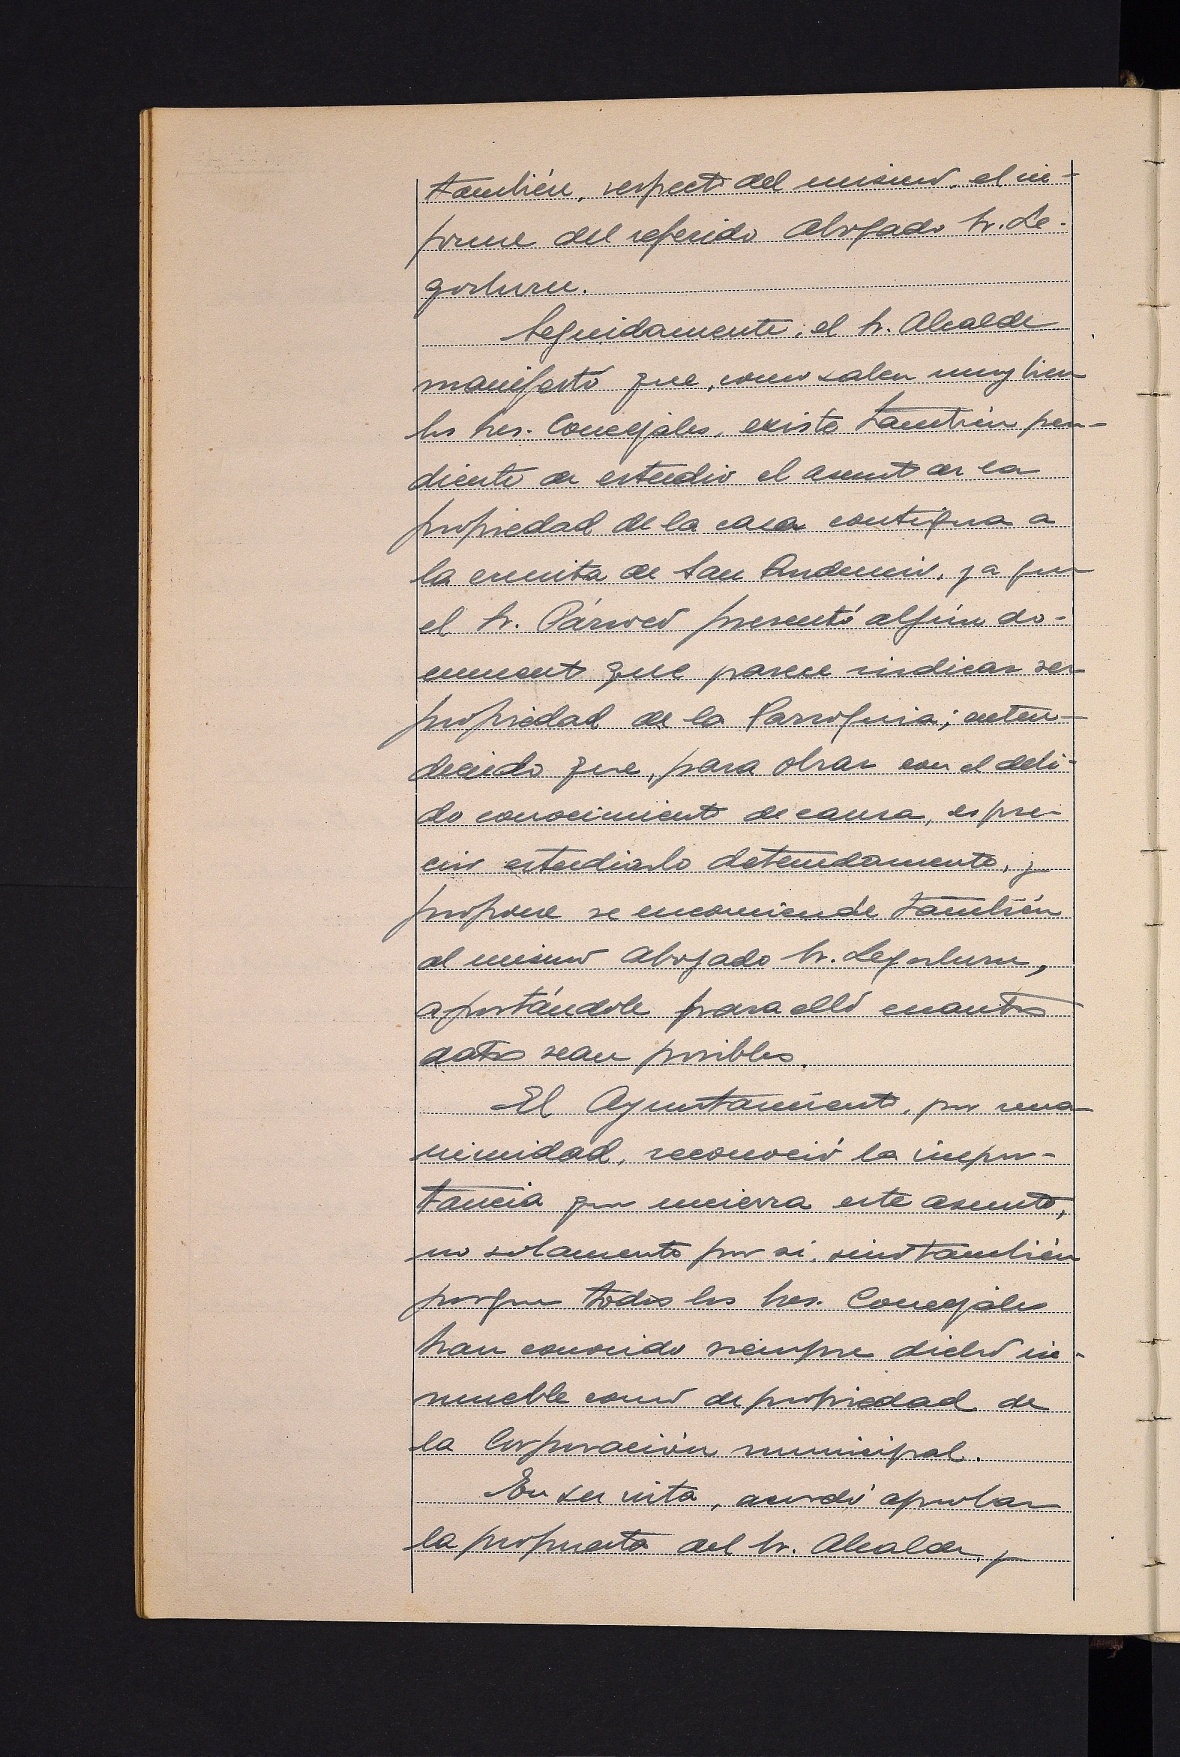 también, respecto del mismo, el in-
forme del referido Abogado Sr. Le-
gorburu.
Seguidamente, el Sr. Alcalde
manifestó que, como saben muy bien
los Sres. Concejales, existe también pen-
diente de estudio el asunto de la
propiedad de la casa contigua a
la ermita de San Andemio, ya que
el Sr. Párroco presentó algún do-
cumento que parece indicar ser
propiedad de la Parroquia; enten-
diendo que, para obrar con el debi-
do conocimiento de causa, es pre-
ciso estudiarlo detenidamente, y
propone se encomiende también
al mismo Abogado Sr. Legorburu,
aportándole para ello cuantos
datos sean posibles.
El Ayuntamiento, por una-
nimidad, reconoció la impor-
tancia que encierra este asunto,
no solamente por sí, sino también
porque todos los Sres. Concejales
han conocido siempre dicho in-
mueble como de propiedad de
la Corporación municipal.
En su vista, acordó aprobar
la propuesta del Sr. Alcalde, y